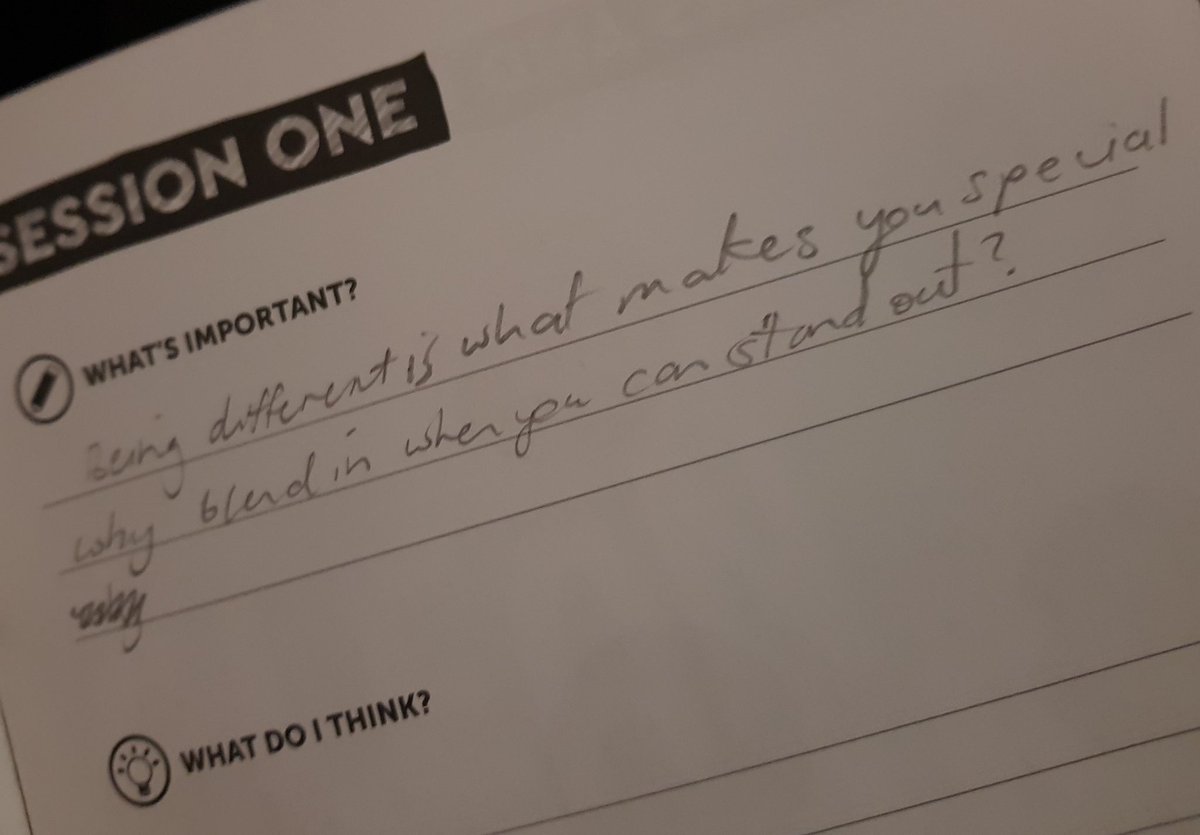 SESSION ONE
WHAT'S IMPORTANT?
Being different is what makes you special
why blend in when you can stand out?
WHAT DO I THINK?